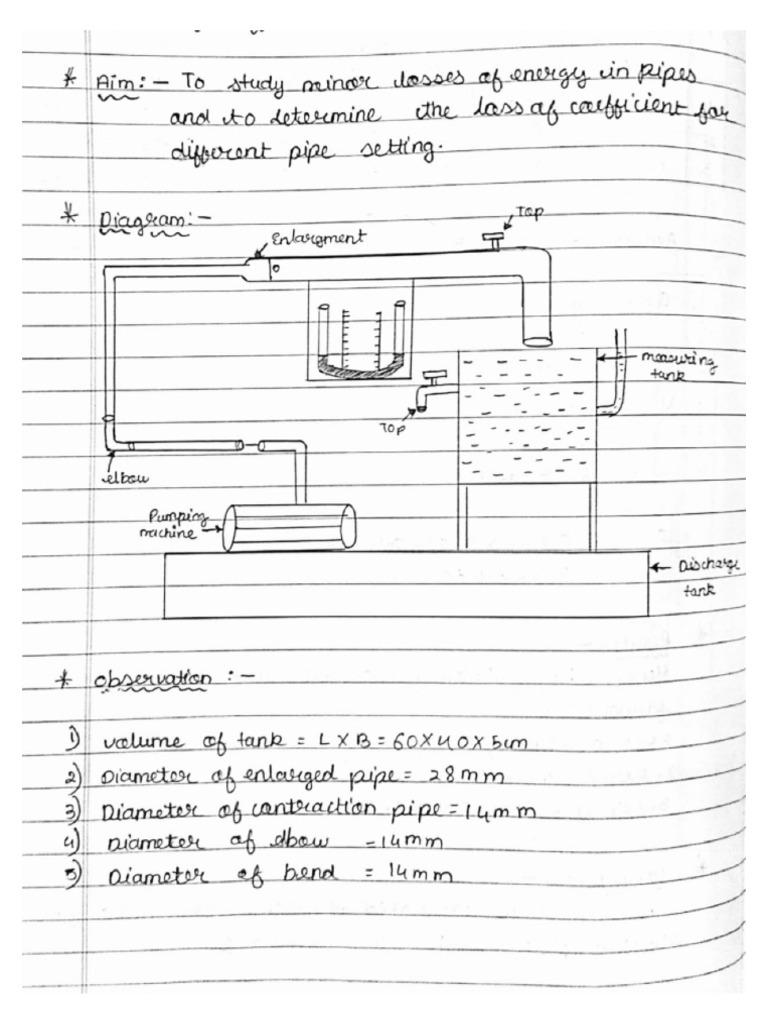 * Aim:- To study minor losses of energy in pipes
and to determine the loss of coefficient for
different pipe setting.
* Diagram:-
Top
Enlargment
measuring
tank
Top
elbow
Pumping
machine
Discharge
tank
* Observation :-
1) volume of tank = L X B = 60 X 40 X 5cm
2) Diameter of enlarged pipe = 28mm
3) Diameter of contraction pipe = 14mm
4) Diameter of elbow = 14mm
5) Diameter of bend = 14mm